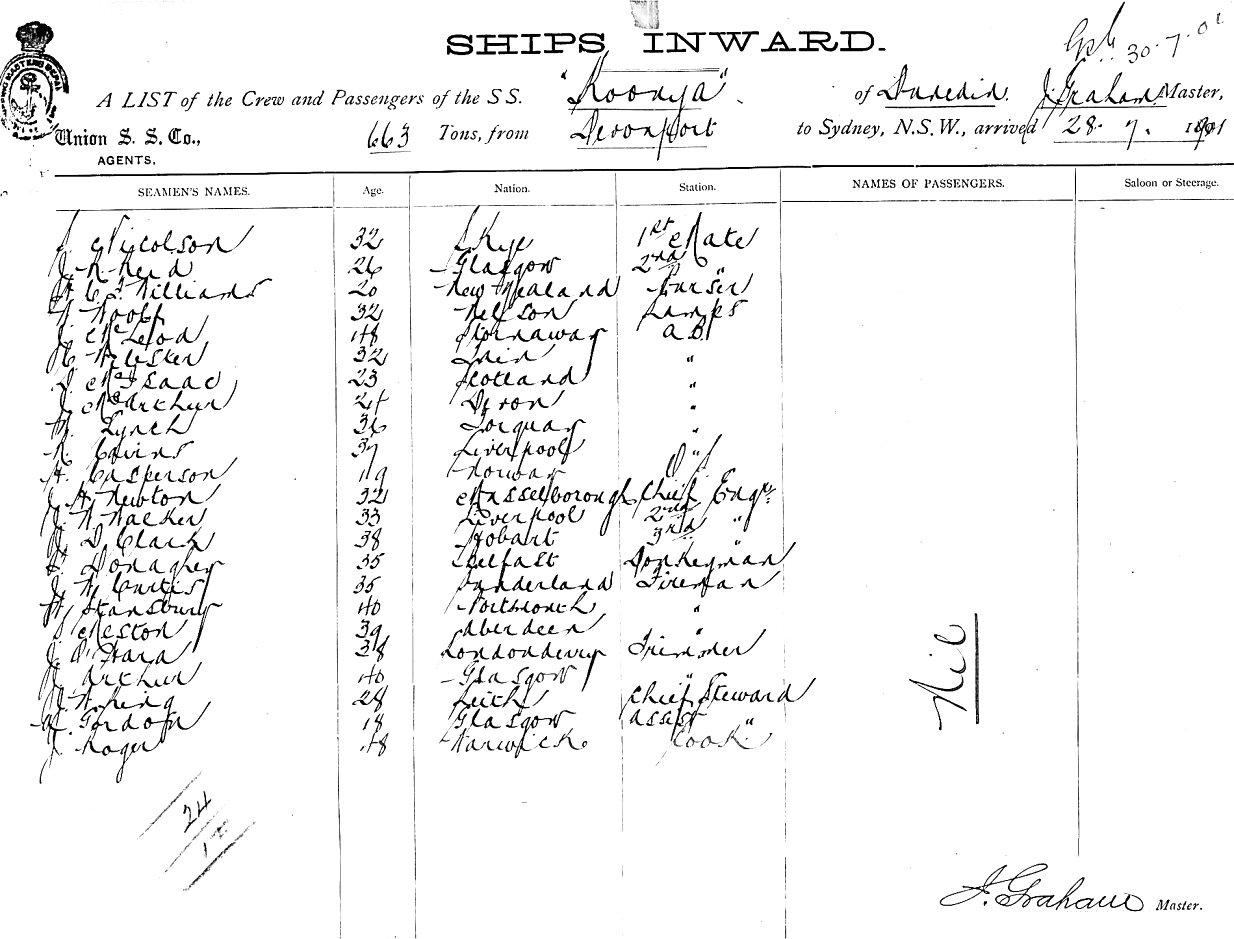 30.7.01
SHIPS INWARD.
A LIST of the Crew and Passengers of the S S. "Koonya" of Dunedin. J. Graham Master,
Union S. S. Co., 663 Tons, from Devonport to Sydney, N.S.W., arrived 28. 7. 1901
AGENTS.
SEAMEN'S NAMES. Age. Nation. Station. NAMES OF PASSENGERS. Saloon or Steerage.
J. Nicolson 32 Skye 1st Mate
J. R. Reid 26 Glasgow 2nd "
H. C. J. Williams 20 New Zealand Purser
W. Woolf 32 Nelson Lamps
J. McLeod 48 Stornaway A.B.
32 "
D. McIsaac 23 Scotland "
J. McArthur 24 Devon "
Lynch 36 Torquay "
R. Cairns 37 Liverpool "
H. Casperson 19 Norway O.S.
J. H. Newton 32 Chief Engr.
J. W. Walker 33 Liverpool 2nd "
J. D. Clark 38 Hobart 3rd "
Donagher 35 Belfast Donkeyman
J. W. Curtis 35 Sunderland Fireman
W. Stansbury 40 "
Meston 39 Aberdeen "
J. O'Hara 38 Londonderry Trimmer
J. Arthur 40 Glasgow "
J. W. King 28 Leith Chief Steward
Gordon 18 Glasgow Assist "
J. Roger 48 Warwick. Cook
Nil
24
J. Graham Master.